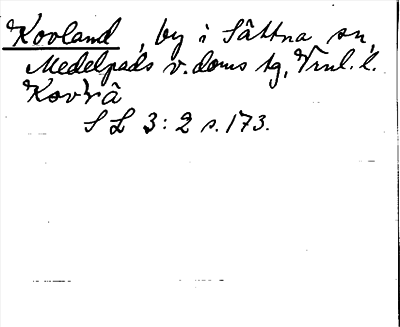 Kovland, by i Sättna sn,
Medelpads v. doms tg, Vnl. l.
Kovrå
S L 3:2 s. 173.